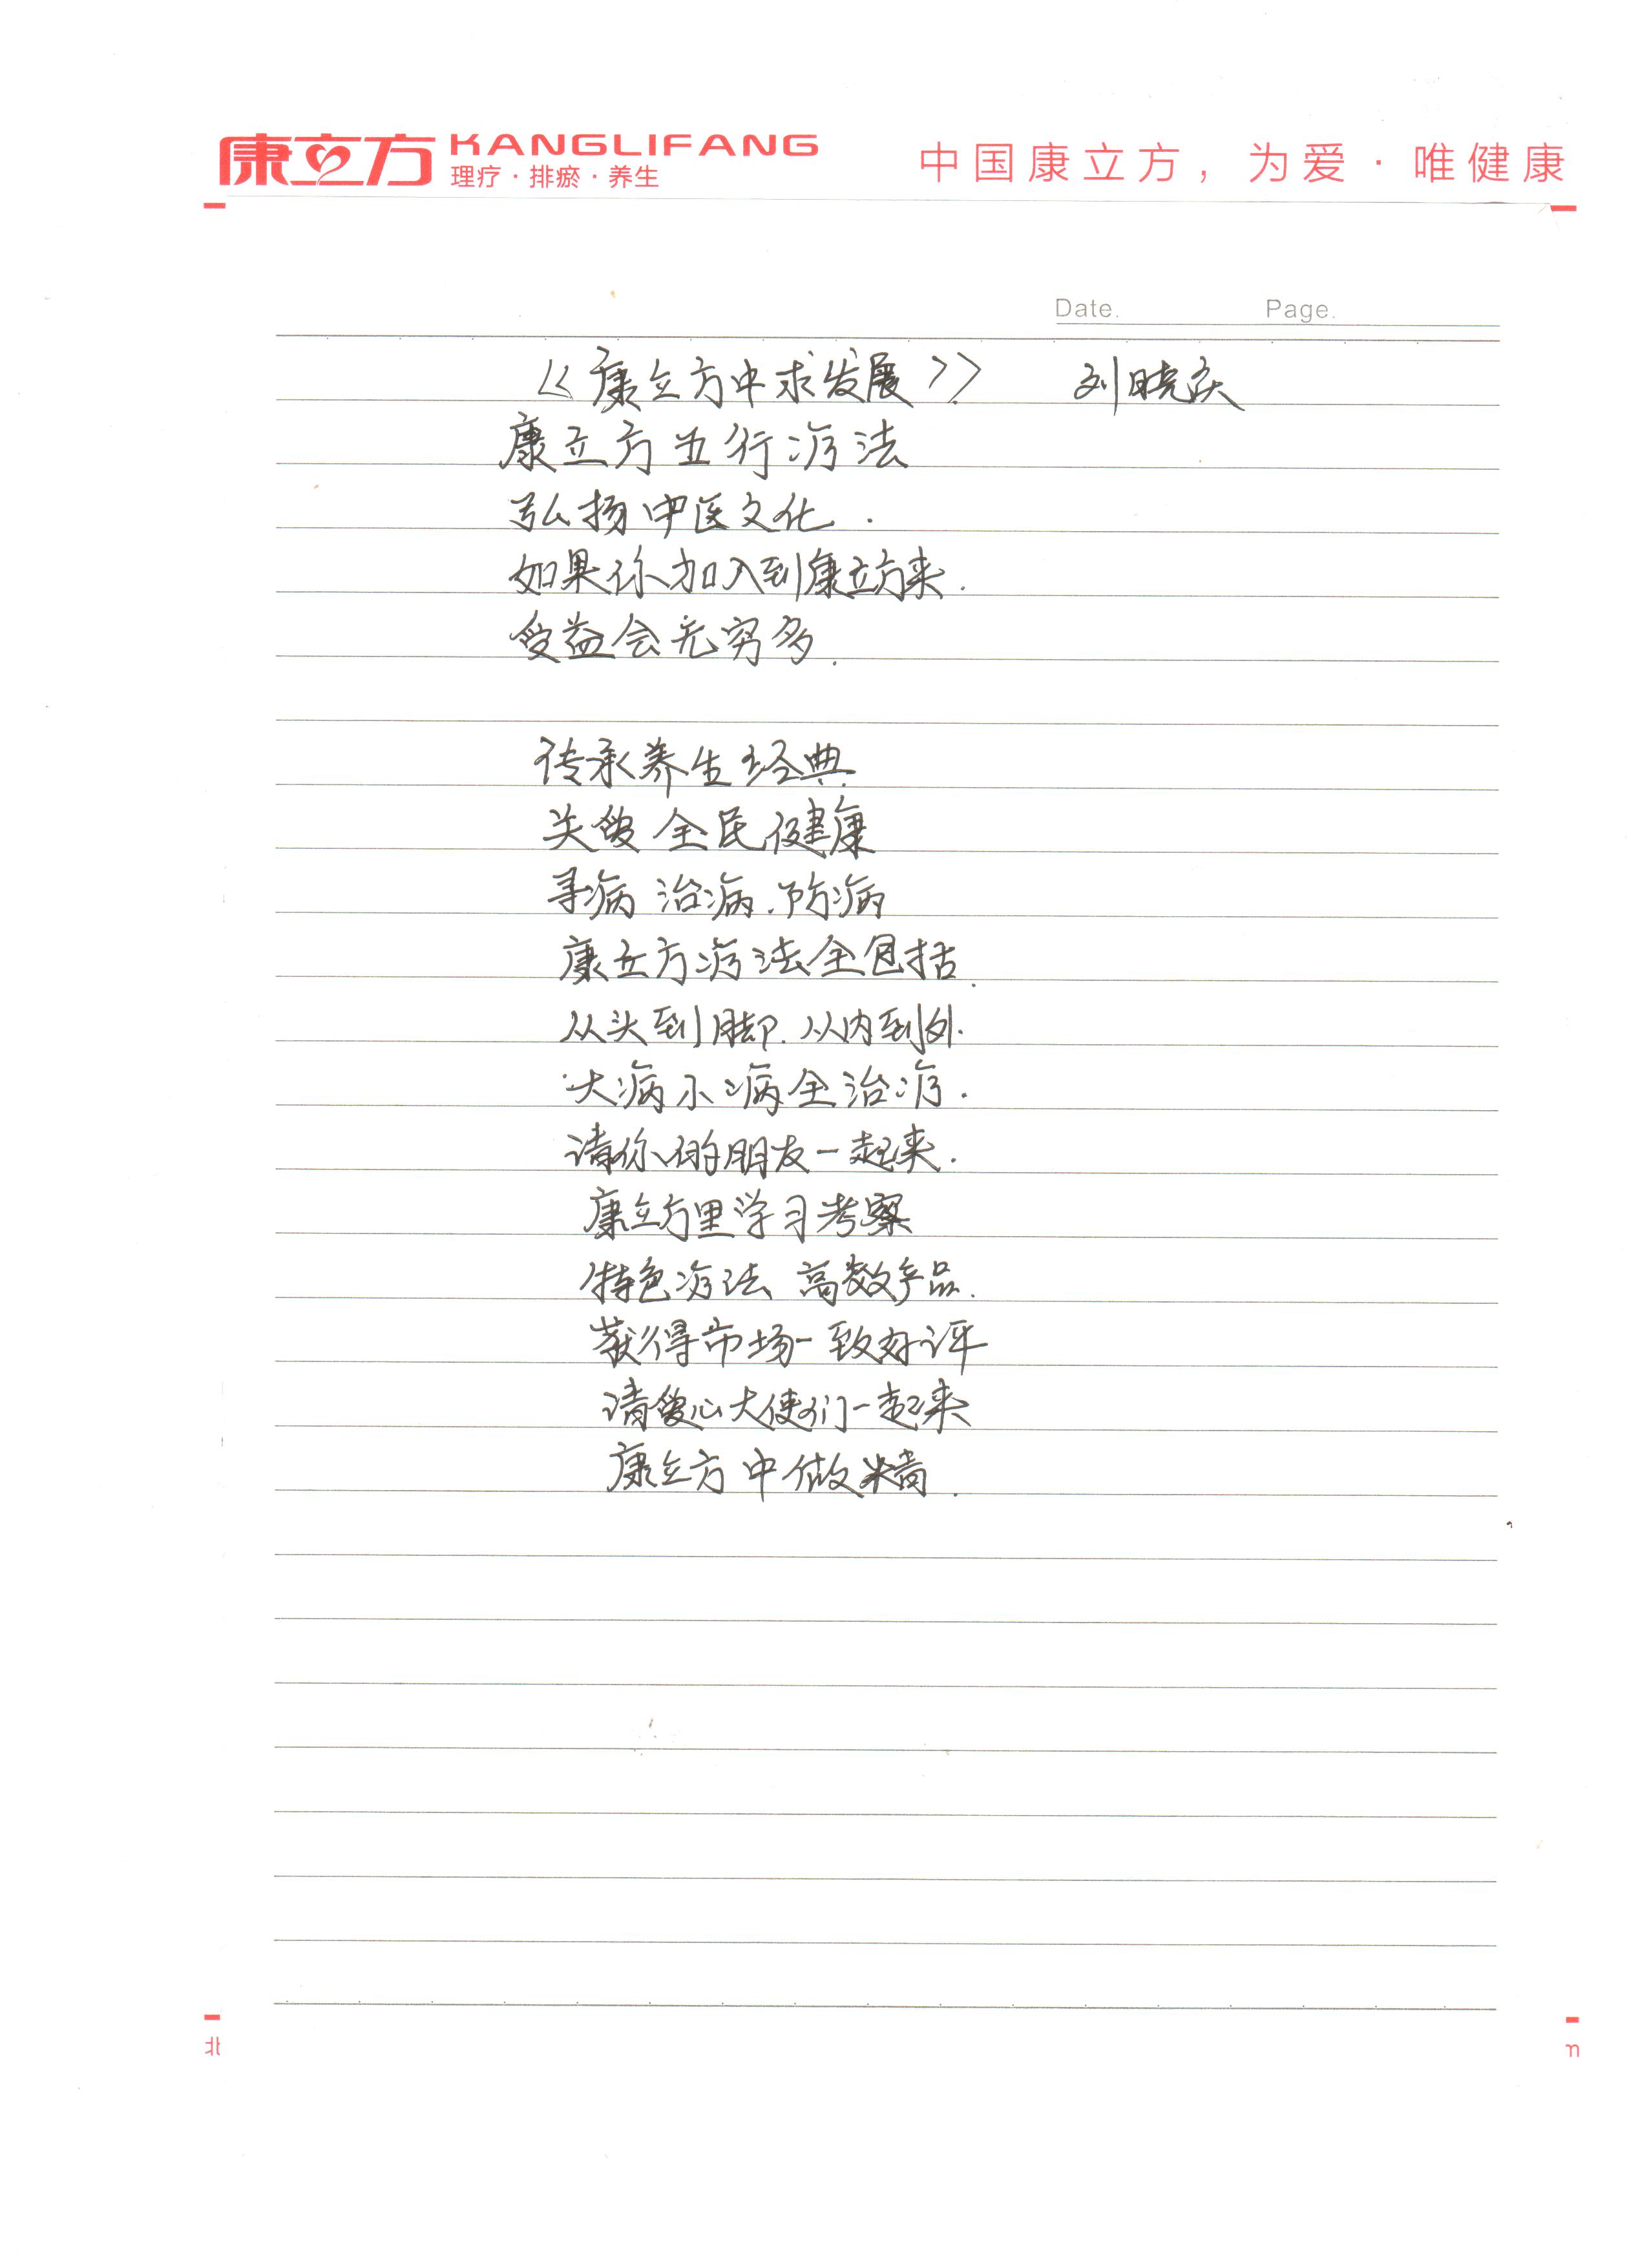 康立方 KANGLIFANG
理疗·排瘀·养生
中国康立方，为爱·唯健康
Date. Page.
《康立方中求发展》 刘晓庆
康立方五行疗法
弘扬中医文化.
如果你加入到康立方来.
受益会无穷多.
传承养生经典.
关爱全民健康
寻病 治病.防病
康立方疗法全包括.
从头到脚.从内到外.
大病小病全治疗.
请你的朋友一起来.
康立方里学习考察
特色疗法 高效产品.
获得市场一致好评
请爱心大使们一起来
康立方中做精.
北
m